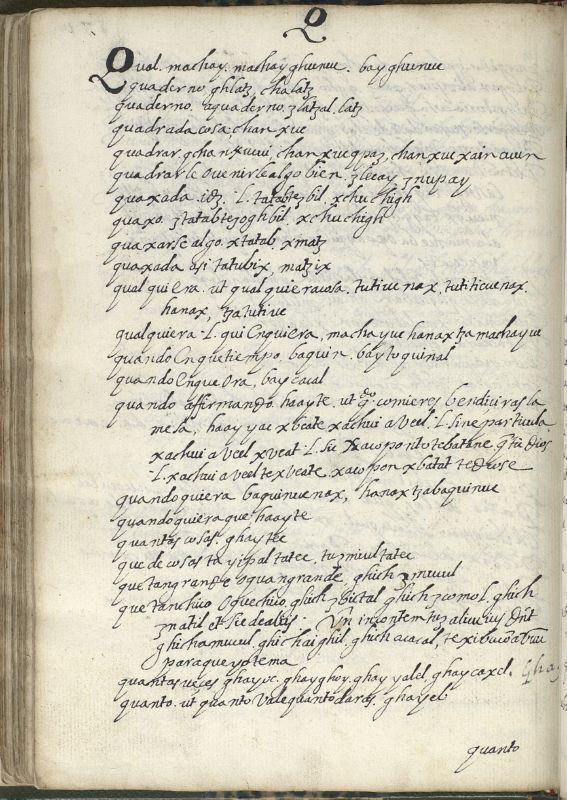 Q
Qual. machay. machay ghunue. bay ghunue
quaderno, ghlatz, chalatz
quaderno. aquaderno, zlatzal. latz
quadrada cosa, chanxue
quadrar, chanxue
quadrarle o venirle algo bien. zlecay znupay
quaxada. idz. L. tatabtezbil. xchuchigh
quaxo. ztatabtezoghbil. xchuchigh
quaxarse algo. xtatab. xmatz
quaxada asi tatubix, matzix
qual quiera. ut qual quiera cosa. tutiue nax, tutiticuenax.
hanax, tzatutiue
qualquiera. L. qui enquiera, machayue hanax tza machayue
quando en que tiempo, baquin. baytoquinal
quando en que ora, baycacal
quando affirmando. haayte. ut qdo comieres bendiciras la
mesa, haay yac xbeate xachui aveel. L. sine particula
xachui aveel xveat. L. sic
L. xachui aveel te xbeate. xacopon xbatat te diose
quando quiera baquinuenax, hanax tzabaquinue
quando quiera que haayte
quantas cosas. ghaytic
que de cosas ta yipaltatec, tuzmiultatec
que tan grande o quan grande, ghich zmucul
que tan chico o que chico, ghich zbictal ghich zcomol. ghich
zmatil et sic de aliis.
ghichamucul. ghichaighil. ghich acacal,
para que yo tema
quantas veces ghayoc. ghayghoy. ghay yalel, ghaycaxel.
quanto. ut quanto vale quanto daras, ghayeb
quanto